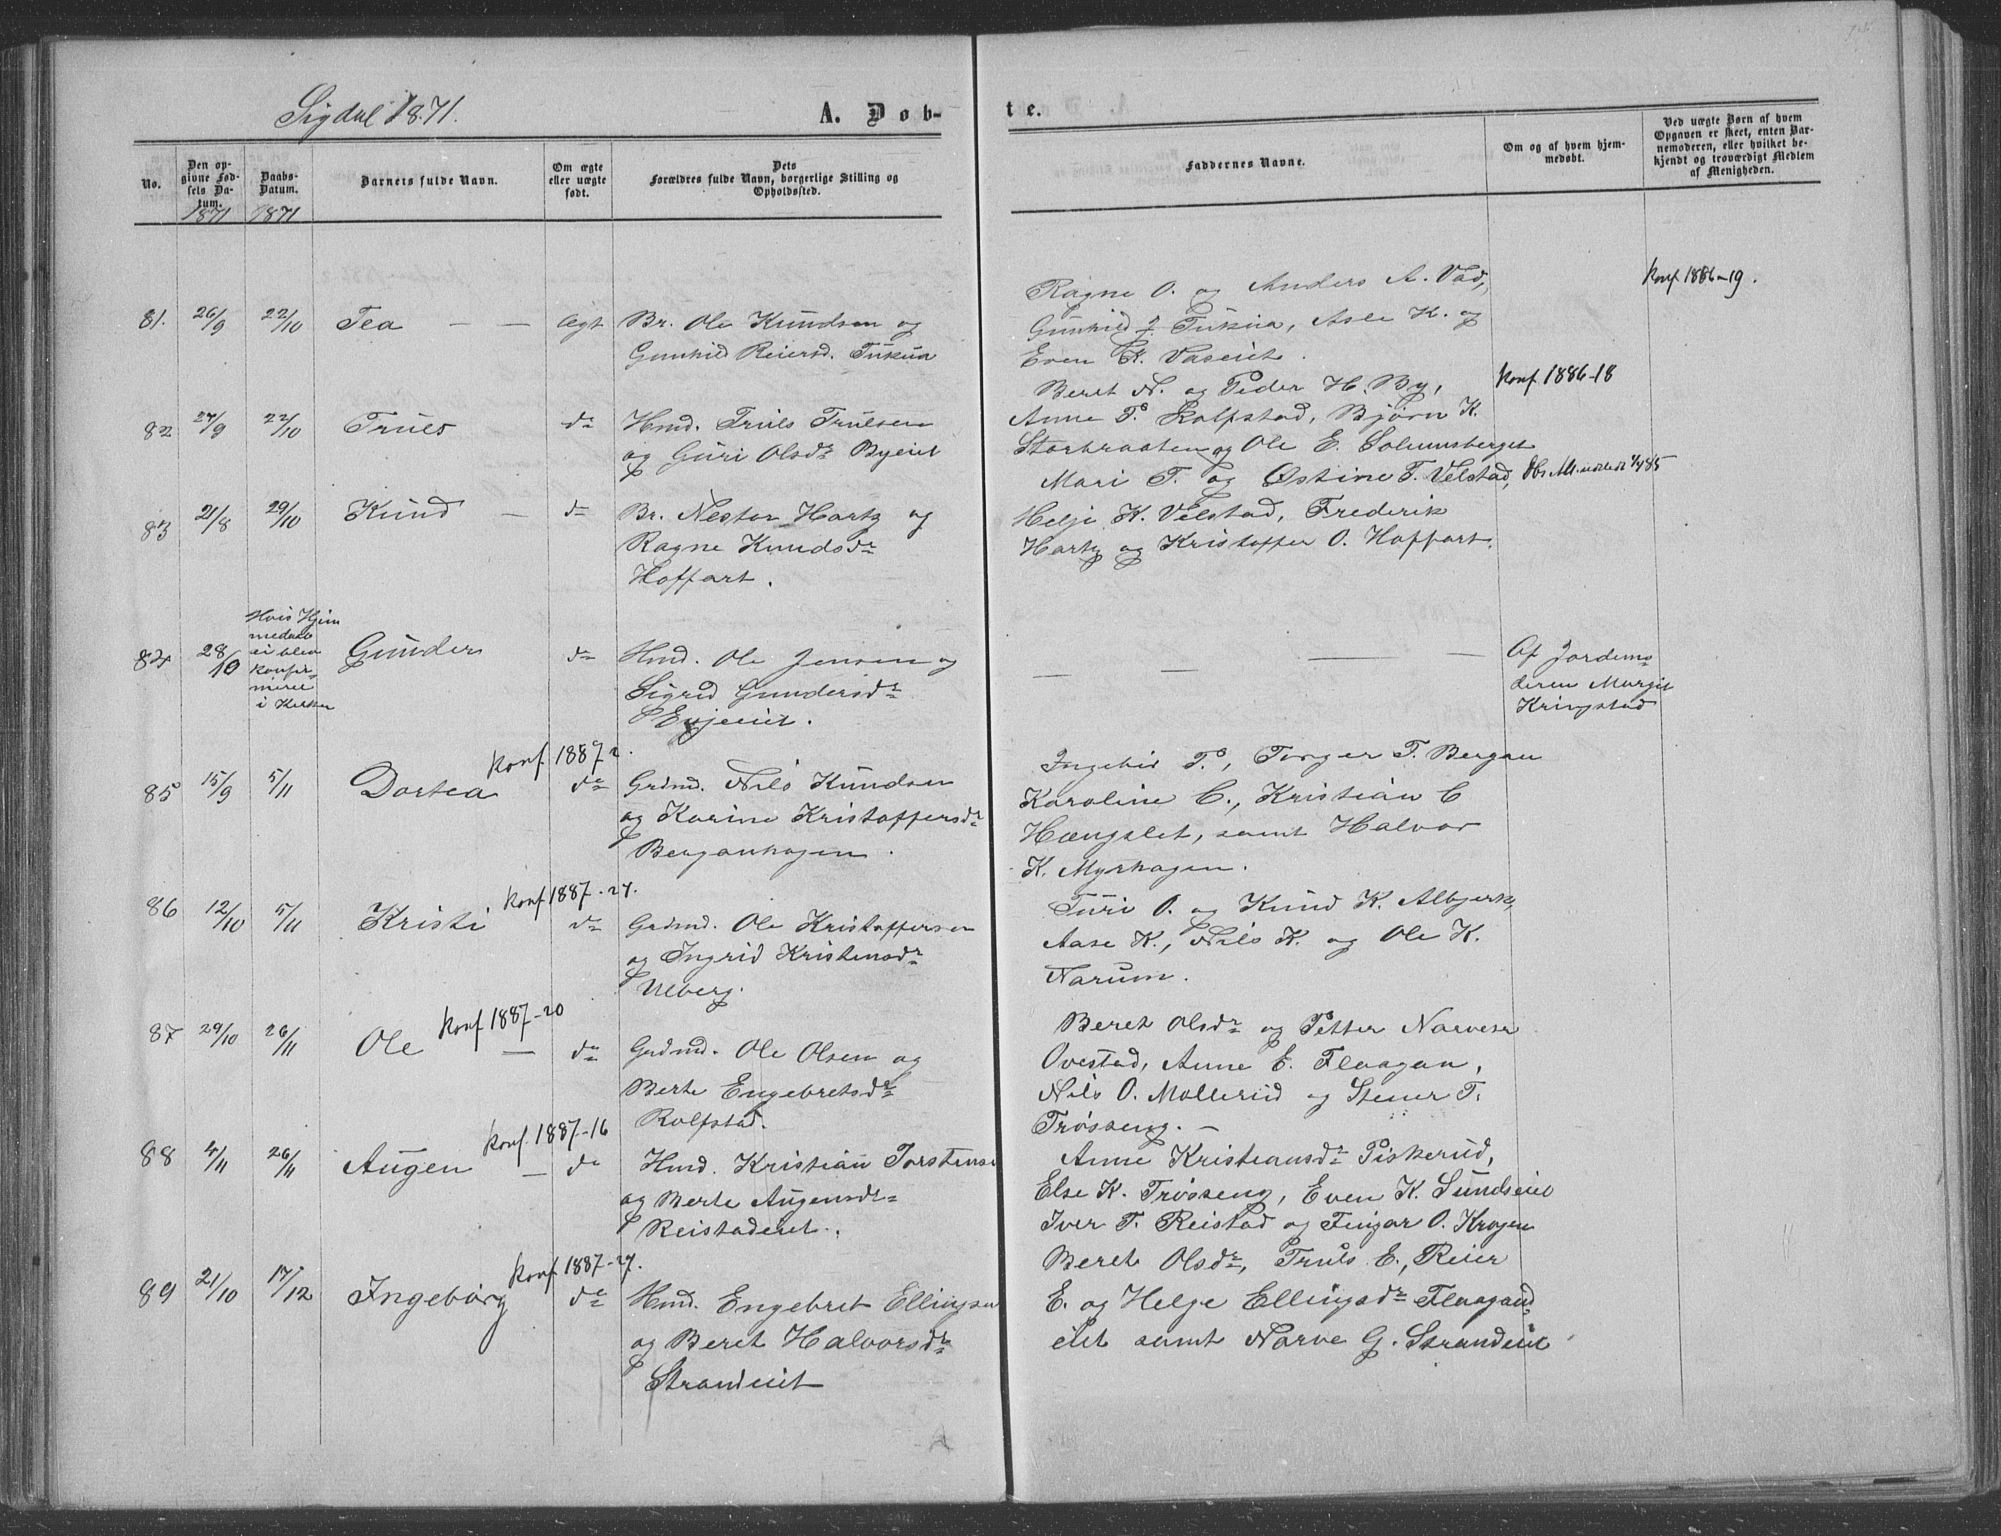 Sigdal 1871.
A. Dob-
te.
No.
Den op-
givne Fød-
sels Da-
tum.
1871
Daabs-
Datum.
1871
Barnets fulde Navn.
Om ægte
eller uægte
født.
Dets
Forældres fulde Navn, borgerlige Stilling og
Opholdssted.
Faddernes Navne.
Om og af hvem hjem-
medøbt.
Ved uægte Børn af hvem
Opgaven er skeet, enten Bar-
nemoderen, eller hvilket be-
kjendt og troværdigt Medlem
af Menigheden.
81. 26/9 22/10 Tea — — Ægt Br. Ole Knudsen og
Gunhild Reiersd. Tukua
Ragne O. og Anders A. Vad,
Gunhild Tukua, Asle K. og
Even K. Vaseiet.
Konf 1886-19.
82 27/9 22/10 Truls do Hmd. Truls Trulsen
og Guri Olsdr Byeiet
Beret N. og Peder H. By,
Anne P. Kolfstad, Bjørn K.
Storbraaten og Ole E. Solumsberget
Konf. 1886-18
83 21/8 29/10 Knud — do Br. Nestor Hartz og
Ragne Knudsdr
Hoffart.
Mari T. og Østine T. Velstad,
Helje K. Velstad, Frederik
Hartz og Kristoffer O. Hoffart.
84 28/10 Hvis Hjem
medaab
ei blev
konfir-
meret
i Kirken
Gunder do Hmd. Ole Jensen og
Sigrid Gundersdr
Evjeeiet.
— — —
Af Jordemo-
deren Margit
Kringstad
85 15/9 5/11 Dortea Konf 1887-2. do Grdmd. Nils Knudsen
og Karine Kristoffersdr
Berganhagen.
Ingebor P., Torger T. Bergan
Karoline C., Kristian C
Hængslet, samt Halvor
K. Myrhagen.
86 12/10 5/11 Kristi Konf 1887-27. do Grdmd. Ole Kristoffersen
og Ingrid Kristensdr
Ulberg.
Turi O. og Knud K. Albjerk,
Aase K., Nils K. og Ole K.
Narum.
87 29/10 26/11 Ole — Konf 1887-20 do Grdmd. Ole Olsen og
Berte Engebretsdr
Rolfstad.
Beret Olsdr og Petter Narvesen
Ovestad, Anne E. Flaagan,
Nils O. Mollerud og Stener T.
Trøsseng. —
88 4/11 26/11 Augen — Konf. 1887-16 do Hmd. Kristian Torstens
og Berte Augensdr
Reistadeiet.
Anne Kristiansdr Piskerud,
Else K. Trøsseng, Even K. Sundseiet
Iver T. Reistad og Fingar O. Kragen
89 21/10 17/12 Ingeborg Konf 1887-27. do Hmd. Engebret Ellingsen
og Beret Halvorsdr
Strandeiet
Beret Olsdr, Truls E., Reier
E. og Helge Ellingsdr Flaagand-
eiet samt Narve G. Strandeiet